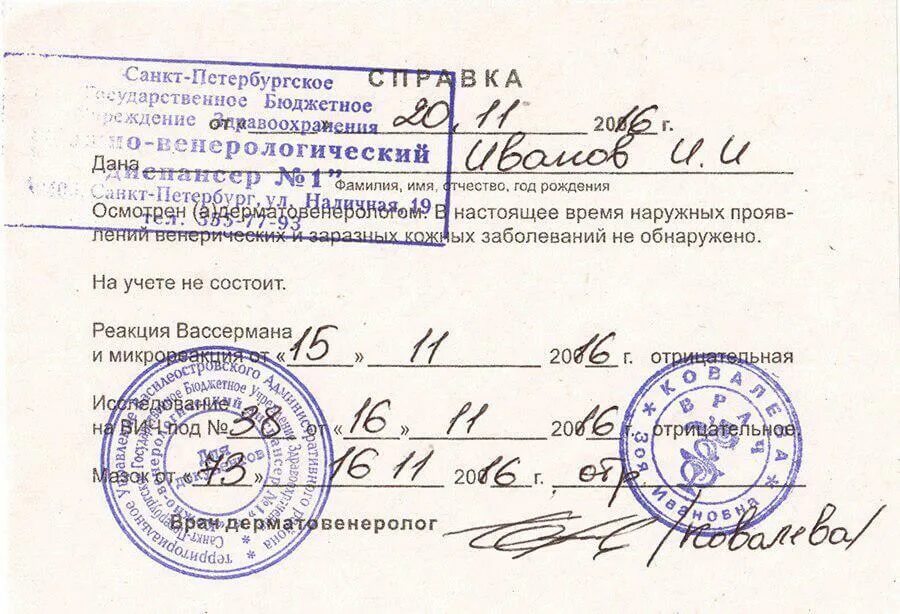 Санкт-Петербургское
Государственное Бюджетное
Учреждение Здравоохранения
-венерологический
диспансер №1"
Санкт-Петербург, ул. Наличная, 19
тел. 355-77-93
СПРАВКА
от « » 20.11 20016 г.
Дана Иванов И.И
Фамилия, имя, отчество, год рождения
Осмотрен (а)дерматовенерологом. В настоящее время наружных прояв-
лений венерических и заразных кожных заболеваний не обнаружено.
На учете не состоит.
Реакция Вассермана
и микрореакция от «15» 11 20016 г. отрицательная
Исследование
на ВИЧ под № 38 от «16» 11 20016 г. отрицательное
Мазок от «73» 16 11 20016 г. отр.
Врач дерматовенеролог /Ковалева/
территориальное Управление Василеостровского Административного района
Санкт-Петербургское Государственное Бюджетное Учреждение Здравоохранения
Для
документов
КОВАЛЕВА
Зоя Ивановна
ВРАЧ